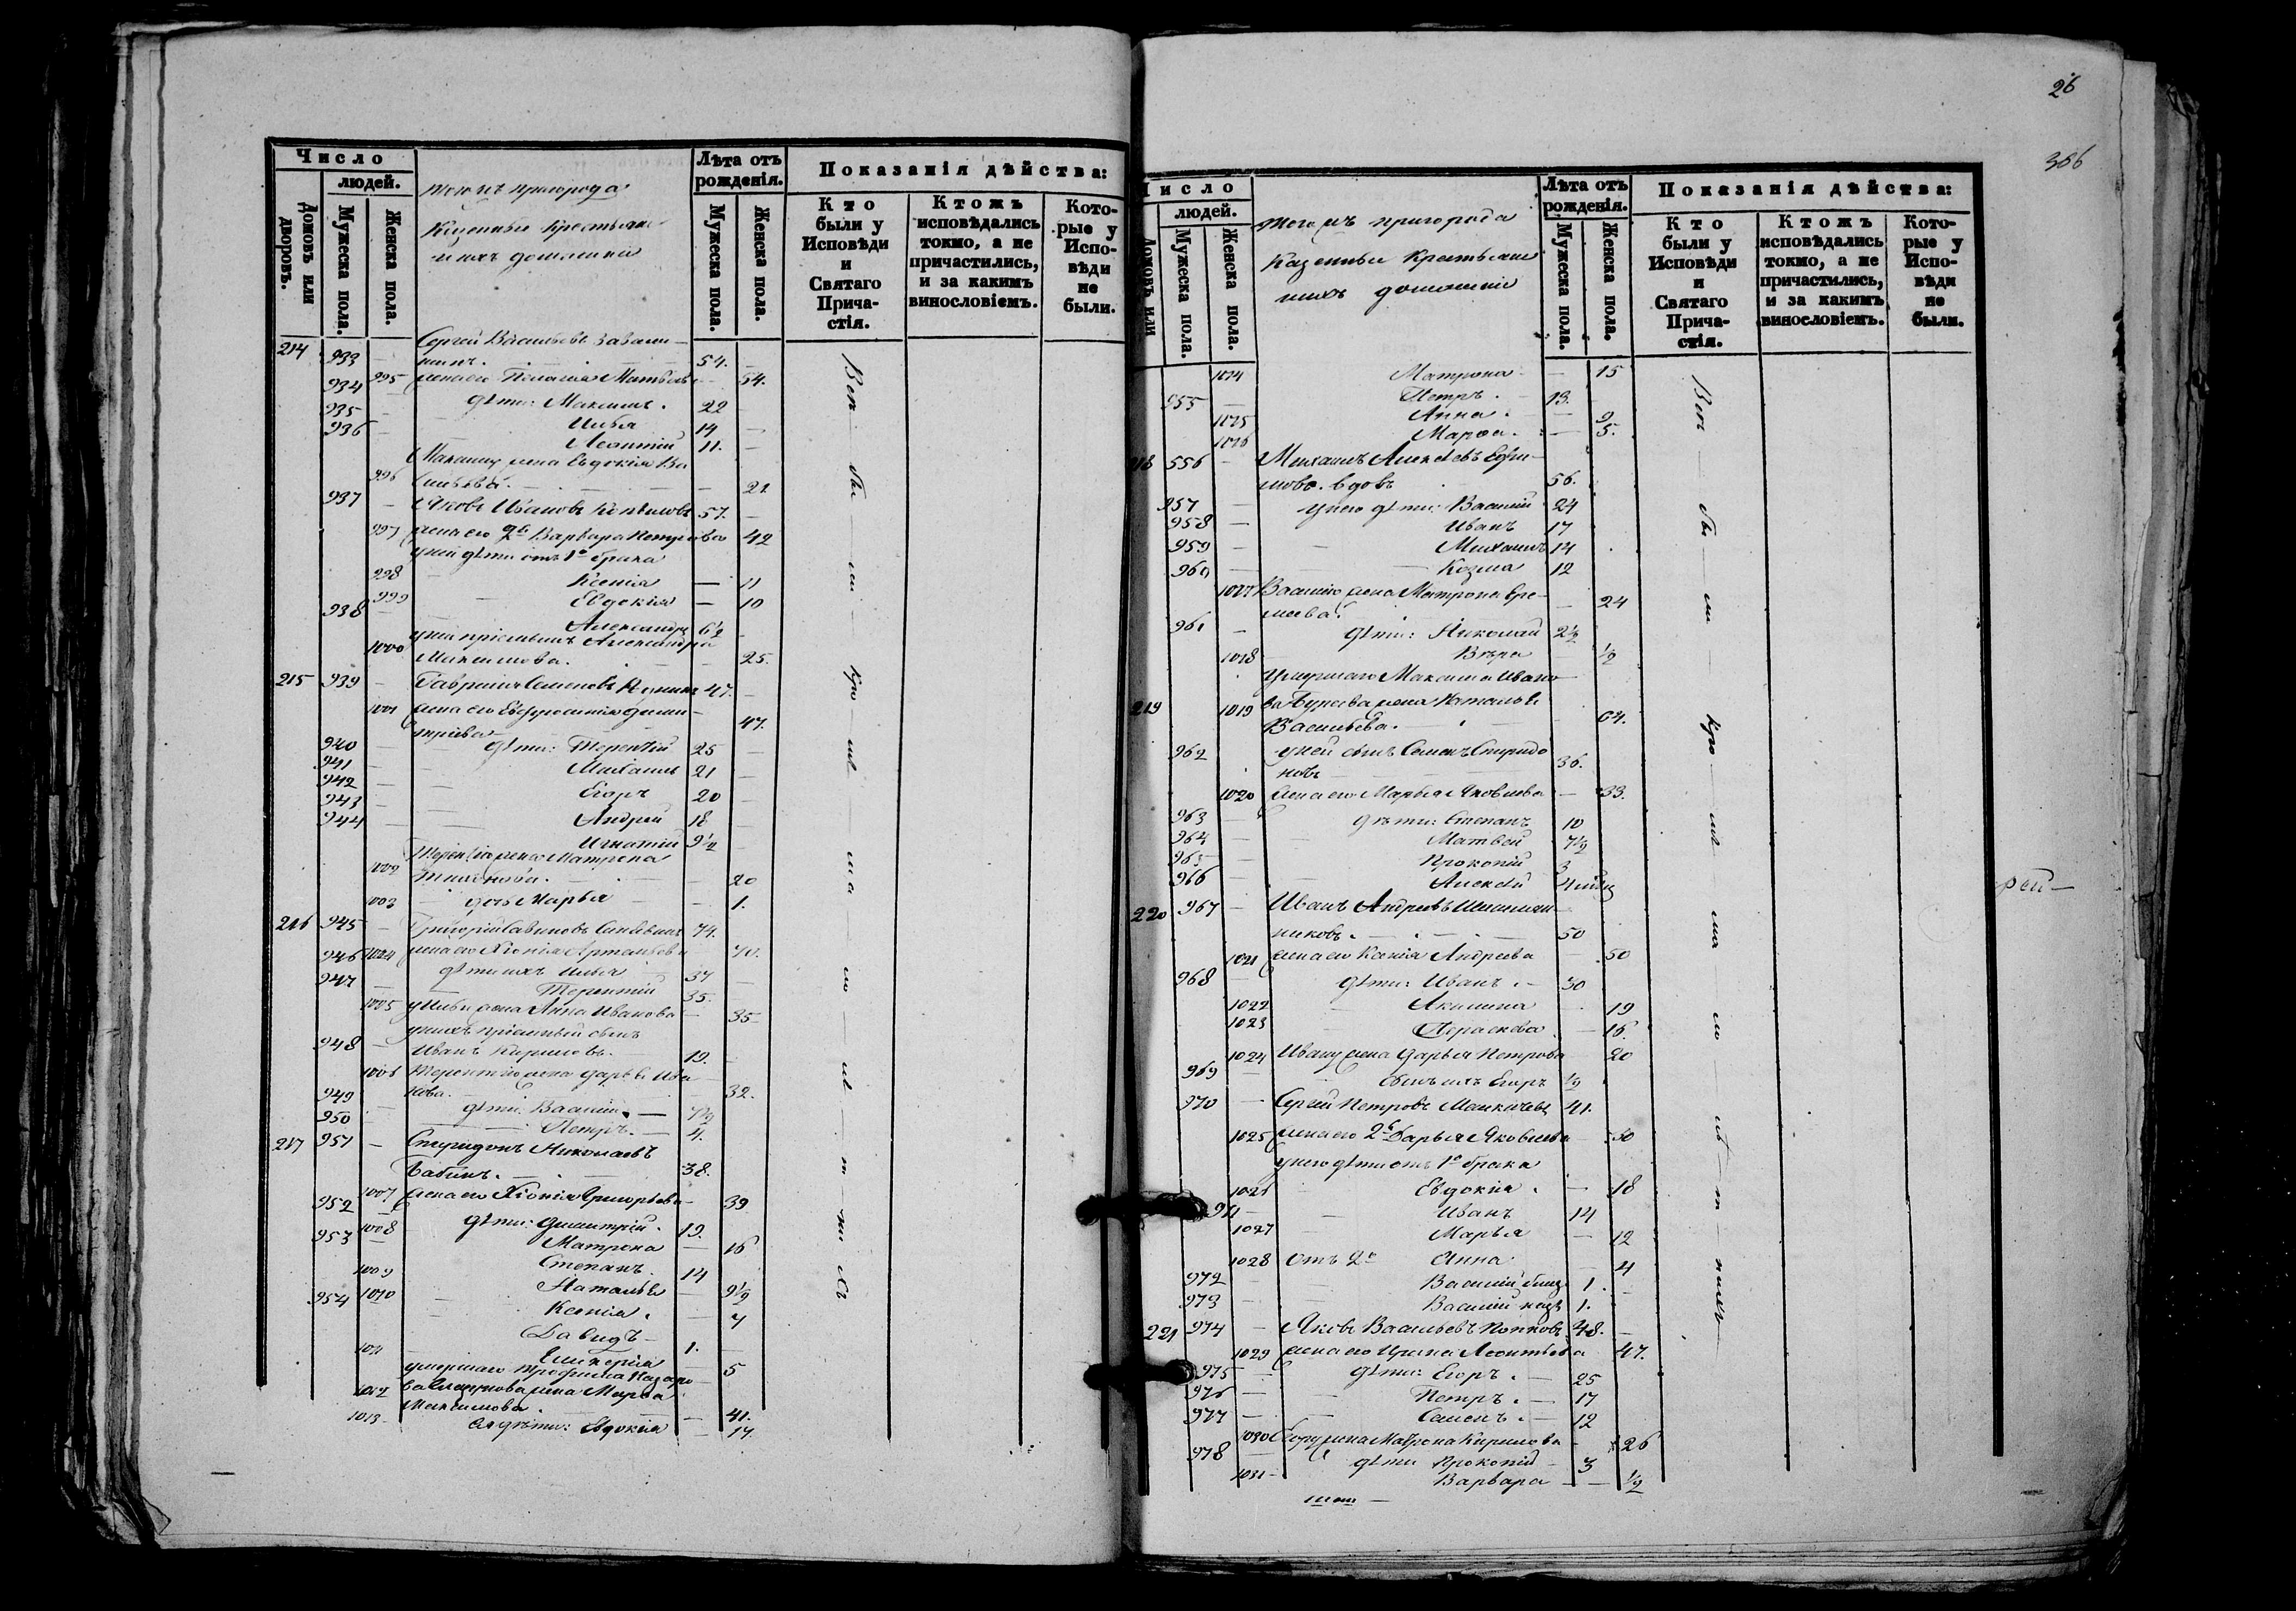 Число
людей.
Домовъ или дворовъ.
Мужеска пола.
Женска пола.
пригорода
Казенные Крестьяне
и ихъ домашніе
Лѣта отъ рожденія.
Мужеска пола.
Женска пола.
Показанія дѣйства:
Кто были у Исповѣди и Святаго Причастія.
Ктожъ исповѣдались токмо, а не причастились, и за какимъ винословіемъ.
Которые у Исповѣди не были.
214 Сергей Васильевъ
933 — 54. —
934 995 жена его Пелагея — 54.
935 — дѣти: Максимъ. 22
936 — Илья 14 —
Леонтій 11. —
Максиму жена Евдокія Ва
996 сильева. — 21
937 — Яковъ Ивановъ 57. —
997 жена его 2я Варвара Петрова 42
у ней дѣти отъ 1го брака
998 Ксенія — 11
999 Евдокія — 10
938 — Александр 6½
Александра
1000 Максимова. — 25.
215 939 — Гавріилъ Семеновъ 47. —
1001 жена его Евфросинія Дими-
тріева 47.
940 — дѣти: Терентій 25 —
941 — Михаилъ 21 —
942 — Егоръ 20 —
943 — Андрей 18
944 — Игнатій 9½
Терентія жена Матрена
1002 20
1003 дочь Марья — 1.
216 945 — Григорій Савиновъ 74.
946 жена его Хіонія 70.
947 дѣти ихъ Илья 37 —
Терентій 35.
1005 у Ильи жена Анна Иванова — 35
у нихъ пріемный сынъ
948 — Иванъ Кириловъ. 19.
1006 Терентію жена Дарья Ива
949 нова. 32.
950 — дѣти: Василій. — 7½
Петръ. — 4.
217 951 — Спиридонъ Николаевъ
Бабинъ. 38.
952 1007 жена его Хіонія Григорьева — 39
953 1008 дѣти: Димитрій. 19.
Матрона — 16
1009 Степанъ. 14
954 1010 Наталья — 9½
Ксенія. — 7
Давидъ — 1.
1011 Гликерія — 5
умершаго Трофима Назаро
1012 ва жена Марѳа
Максимова. — 41.
1013 — ея дѣти: Евдокія — 17.
Вси — бы — ли —
26
366
Число
людей.
Домовъ или
Мужеска пола.
Женска пола.
Тогожъ пригорода
Казенные Крестьяне
и ихъ домашніе
Лѣта отъ рожденія.
Мужеска пола.
Женска пола.
Показанія дѣйства:
Кто были у Исповѣди и Святаго Причастія.
Ктожъ исповѣдались токмо, а не причастились, и за какимъ винословіемъ.
Которые у Исповѣди не были.
1014 Матрона — 15
955 — Петръ. — 13.
1015 Анна. — 9
1016 Марѳа. — 5.
218 556 — Михаилъ Алексѣевъ Ефи-
мовъ. вдовъ 56.
957 — у него дѣти: Василій 24
958 — Иванъ 17
959 — Михаилъ 14
960 — Козма 12
1017 Василію жена Матрона Ере-
меева. — 24
961 — дѣти: Николай 2½
1018 Вѣра — ½
умершаго Максима Ивано
219 1019 ва жена Наталья
Васильева. — 64.
962 у ней сынъ Семенъ Спиридо
новъ 36.
1020 жена его Марья Яковлева — 33.
963 — дѣти: Степанъ 10
964 — Матвей 7½
965 — Прокопій 3
966 — Алексѣй
220 967 — Иванъ Андреевъ
никовъ. — 50
1021 жена его Ксенія Андреева — 50
968 — дѣти: Иванъ. — 30
1022 Акилина — 19
1023 Параскева — 16.
1024 Ивану жена Дарья Петрова 20
969 — сынъ ихъ Егоръ ½
970 — Сергей Петровъ 41.
1025 жена его 2я Дарья Яковлева 30
у него дѣти отъ 1го брака
1026 Евдокія. — 18
971 — Иванъ 14
1027 Марья — 12
1028 отъ 2го Анна — 4
972 — Василій 1. —
973 — Василій 1.
221 974 — Яковъ Васильевъ Попковъ 48. —
1029 жена его Ирина Леонтьева 47.
975 — дѣти: Егоръ. — 25
976 — Петръ. — 17
977 — Семенъ. — 12
1030 Егору жена Матрона Кирилова — 26
978 — дѣти Прокопій — 3
1031 — Варвара — ½
Вси — бы — ли —